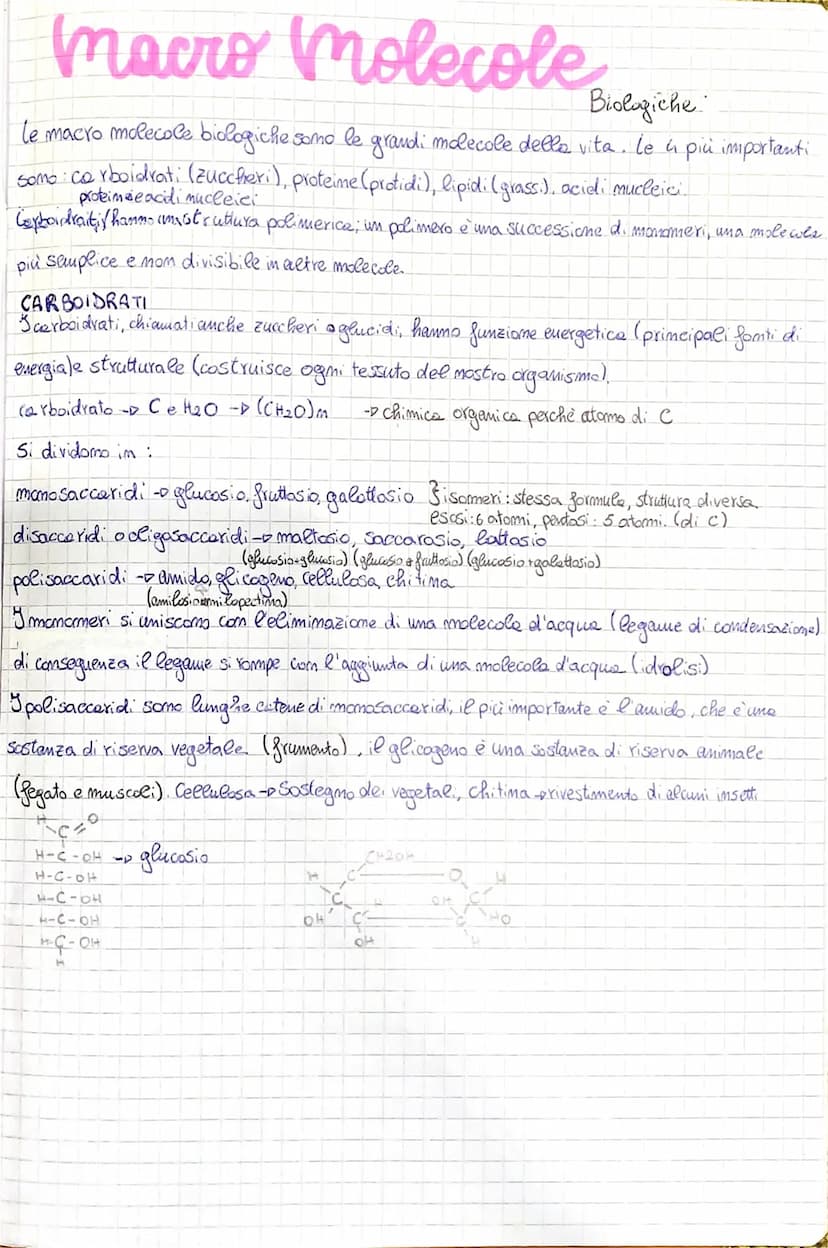 Macro Molecole
Biologiche
le macro molecole biologiche sono le grandi molecole della vita. Le 4 più importanti
sono: carboidrati (zuccheri), proteine (protidi), lipidi (grassi), acidi nucleici.
proteine e acidi nucleici
Carboidrati, hanno una struttura polimerica; un polimero è una successione di monomeri, una molecola
più semplice e non divisibile in altre molecole.
CARBOIDRATI
I carboidrati, chiamati anche zuccheri o glucidi, hanno funzione energetica (principali fonti di
energia) e strutturale (costruisce ogni tessuto del nostro organismo).
carboidrato → C e H2O → (CH2O)n → chimica organica perchè atomo di C
Si dividono in:
monosaccaridi → glucosio, fruttosio, galottosio } isomeri: stessa formula, struttura diversa
esosi: 6 atomi, pentosi: 5 atomi. (di C)
disaccaridi o oligosaccaridi → maltosio, saccarosio, lattosio
(glucosio+glucosio) (glucosio+fruttosio) (glucosio+galattosio)
polisaccaridi → amido, glicogeno, cellulosa, chitina
(amilosio+amilopectina)
I monomeri si uniscono con l'eliminazione di una molecola d'acqua (legame di condensazione)
di conseguenza il legame si rompe con l'aggiunta di una molecola d'acqua (idrolisi)
I polisaccaridi sono lunghe catene di monosaccaridi, il più importante è l'amido, che è una
sostanza di riserva vegetale (frumento), il glicogeno è una sostanza di riserva animale
(fegato e muscoli). Cellulosa → Sostegno dei vegetali, chitina → rivestimento di alcuni insetti
H O
C
H-C-OH → glucosio
H-C-OH
H-C-OH
H-C-OH
H-C-OH
H
CH2OH
H C O H
C OH C
OH C H C HO
OH H